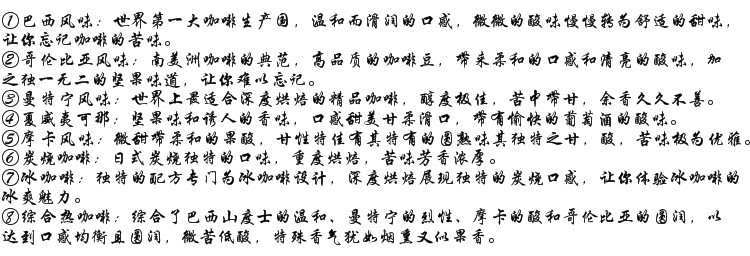 ①巴西风味：世界第一大咖啡生产国，温和而滑润的口感，微微的酸味慢慢转为舒适的甜味，
让你忘记咖啡的苦味。
②哥伦比亚风味：南美洲咖啡的典范，高品质的咖啡豆，带来柔和的口感和清亮的酸味，加
之独一无二的坚果味道，让你难以忘记。
③曼特宁风味：世界上最适合深度烘焙的精品咖啡，醇度极佳，苦中带甘，余香久久不善。
④夏威夷可那：坚果味和诱人的香味，口感甜美甘柔滑口，带有愉快的葡萄酒的酸味。
⑤摩卡风味：微甜带柔和的果酸，甘性特佳有其特有的圆熟味其独特之甘，酸，苦味极为优雅。
⑥炭烧咖啡：日式炭烧独特的口味，重度烘焙，苦味芳香浓厚。
⑦冰咖啡：独特的配方专门为冰咖啡设计，深度烘焙展现独特的炭烧口感，让你体验冰咖啡的
冰爽魅力。
⑧综合热咖啡：综合了巴西山度士的温和、曼特宁的烈性、摩卡的酸和哥伦比亚的圆润，以
达到口感均衡且圆润，微苦低酸，特殊香气犹如烟熏又似果香。